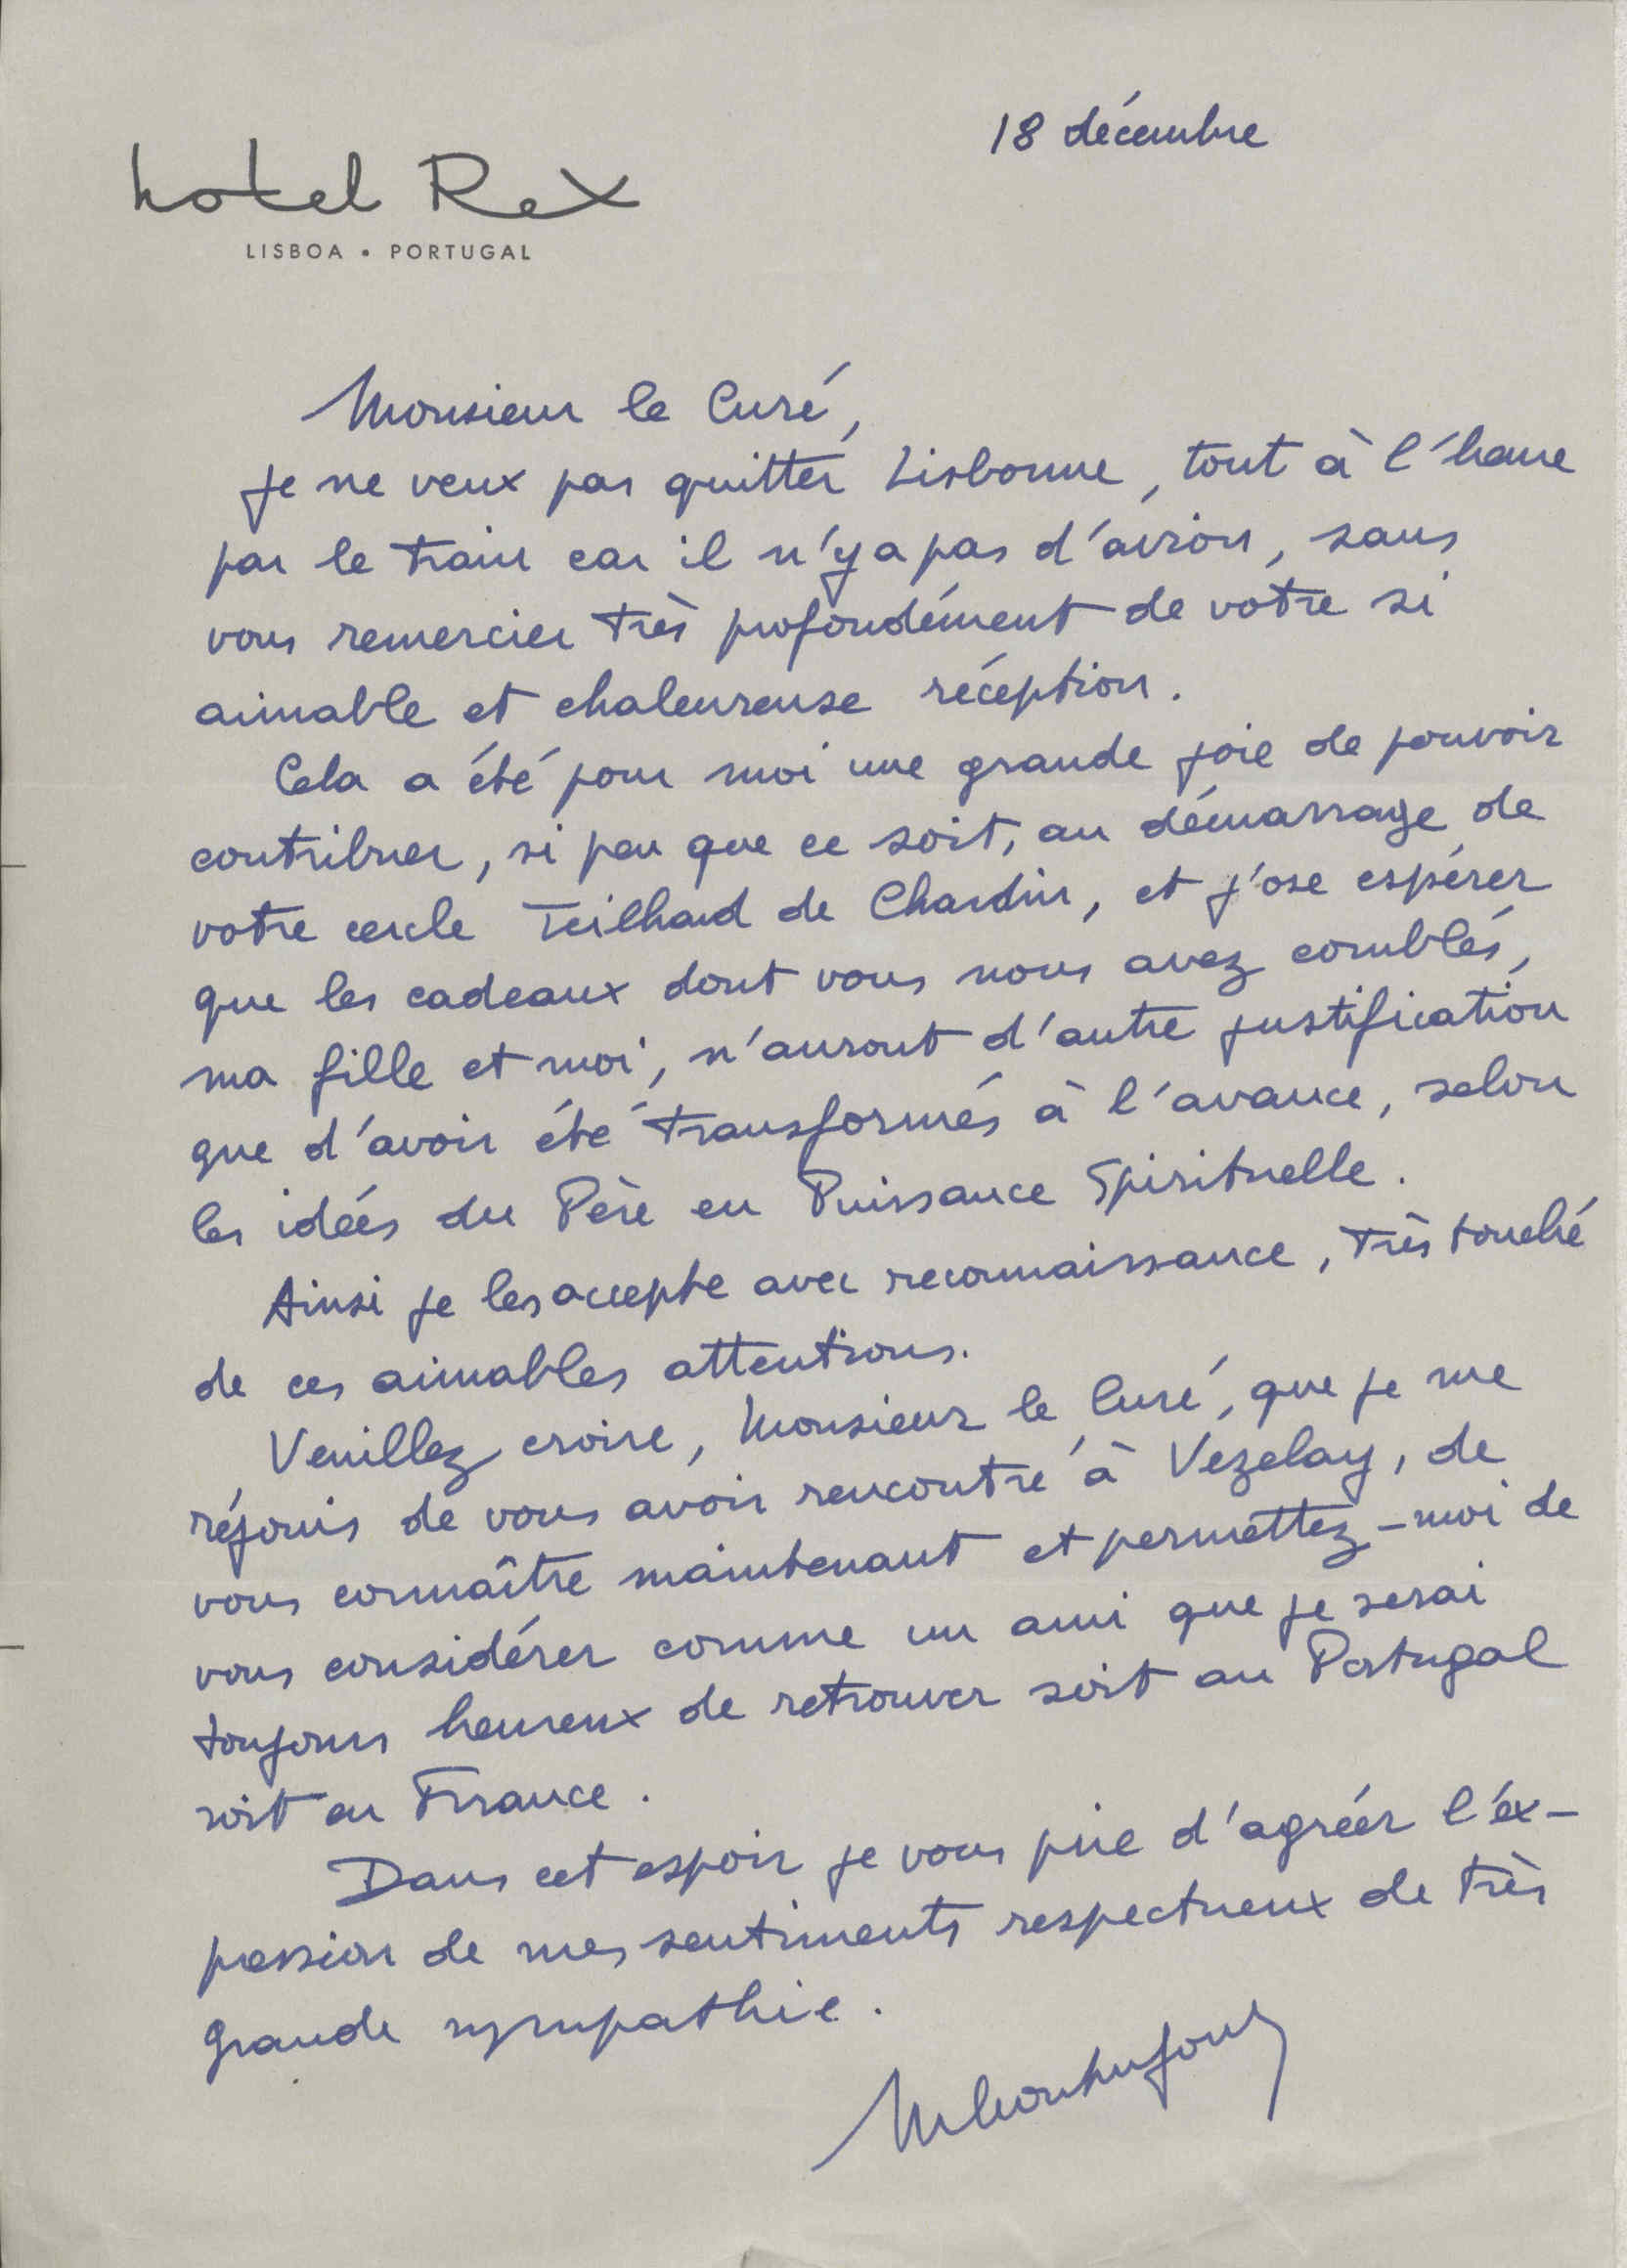 18 décembre
hotel Rex
LISBOA • PORTUGAL
Monsieur le Curé,
Je ne veux pas quitter Lisbonne, tout à l'heure
par le train car il n'y a pas d'avion, sans
vous remercier très profondément de votre si
aimable et chaleureuse réception.
Cela a été pour moi une grande joie de pouvoir
contribuer, si peu que ce soit, au démarrage de
votre cercle Teilhard de Chardin, et j'ose espérer
que les cadeaux dont vous nous avez comblés,
ma fille et moi, n'auront d'autre justification
que d'avoir été transformés à l'avance, selon
les idées du Père en Puissance Spirituelle.
Ainsi je les accepte avec reconnaissance, très touché
de ces aimables attentions.
Veuillez croire, Monsieur le Curé, que je me
réjouis de vous avoir rencontré à Vezelay, de
vous connaître maintenant et permettez-moi de
vous considérer comme un ami que je serai
toujours heureux de retrouver soit au Portugal
soit en France.
Dans cet espoir je vous prie d'agréer l'ex-
pression de mes sentiments respectueux de très
grande sympathie.